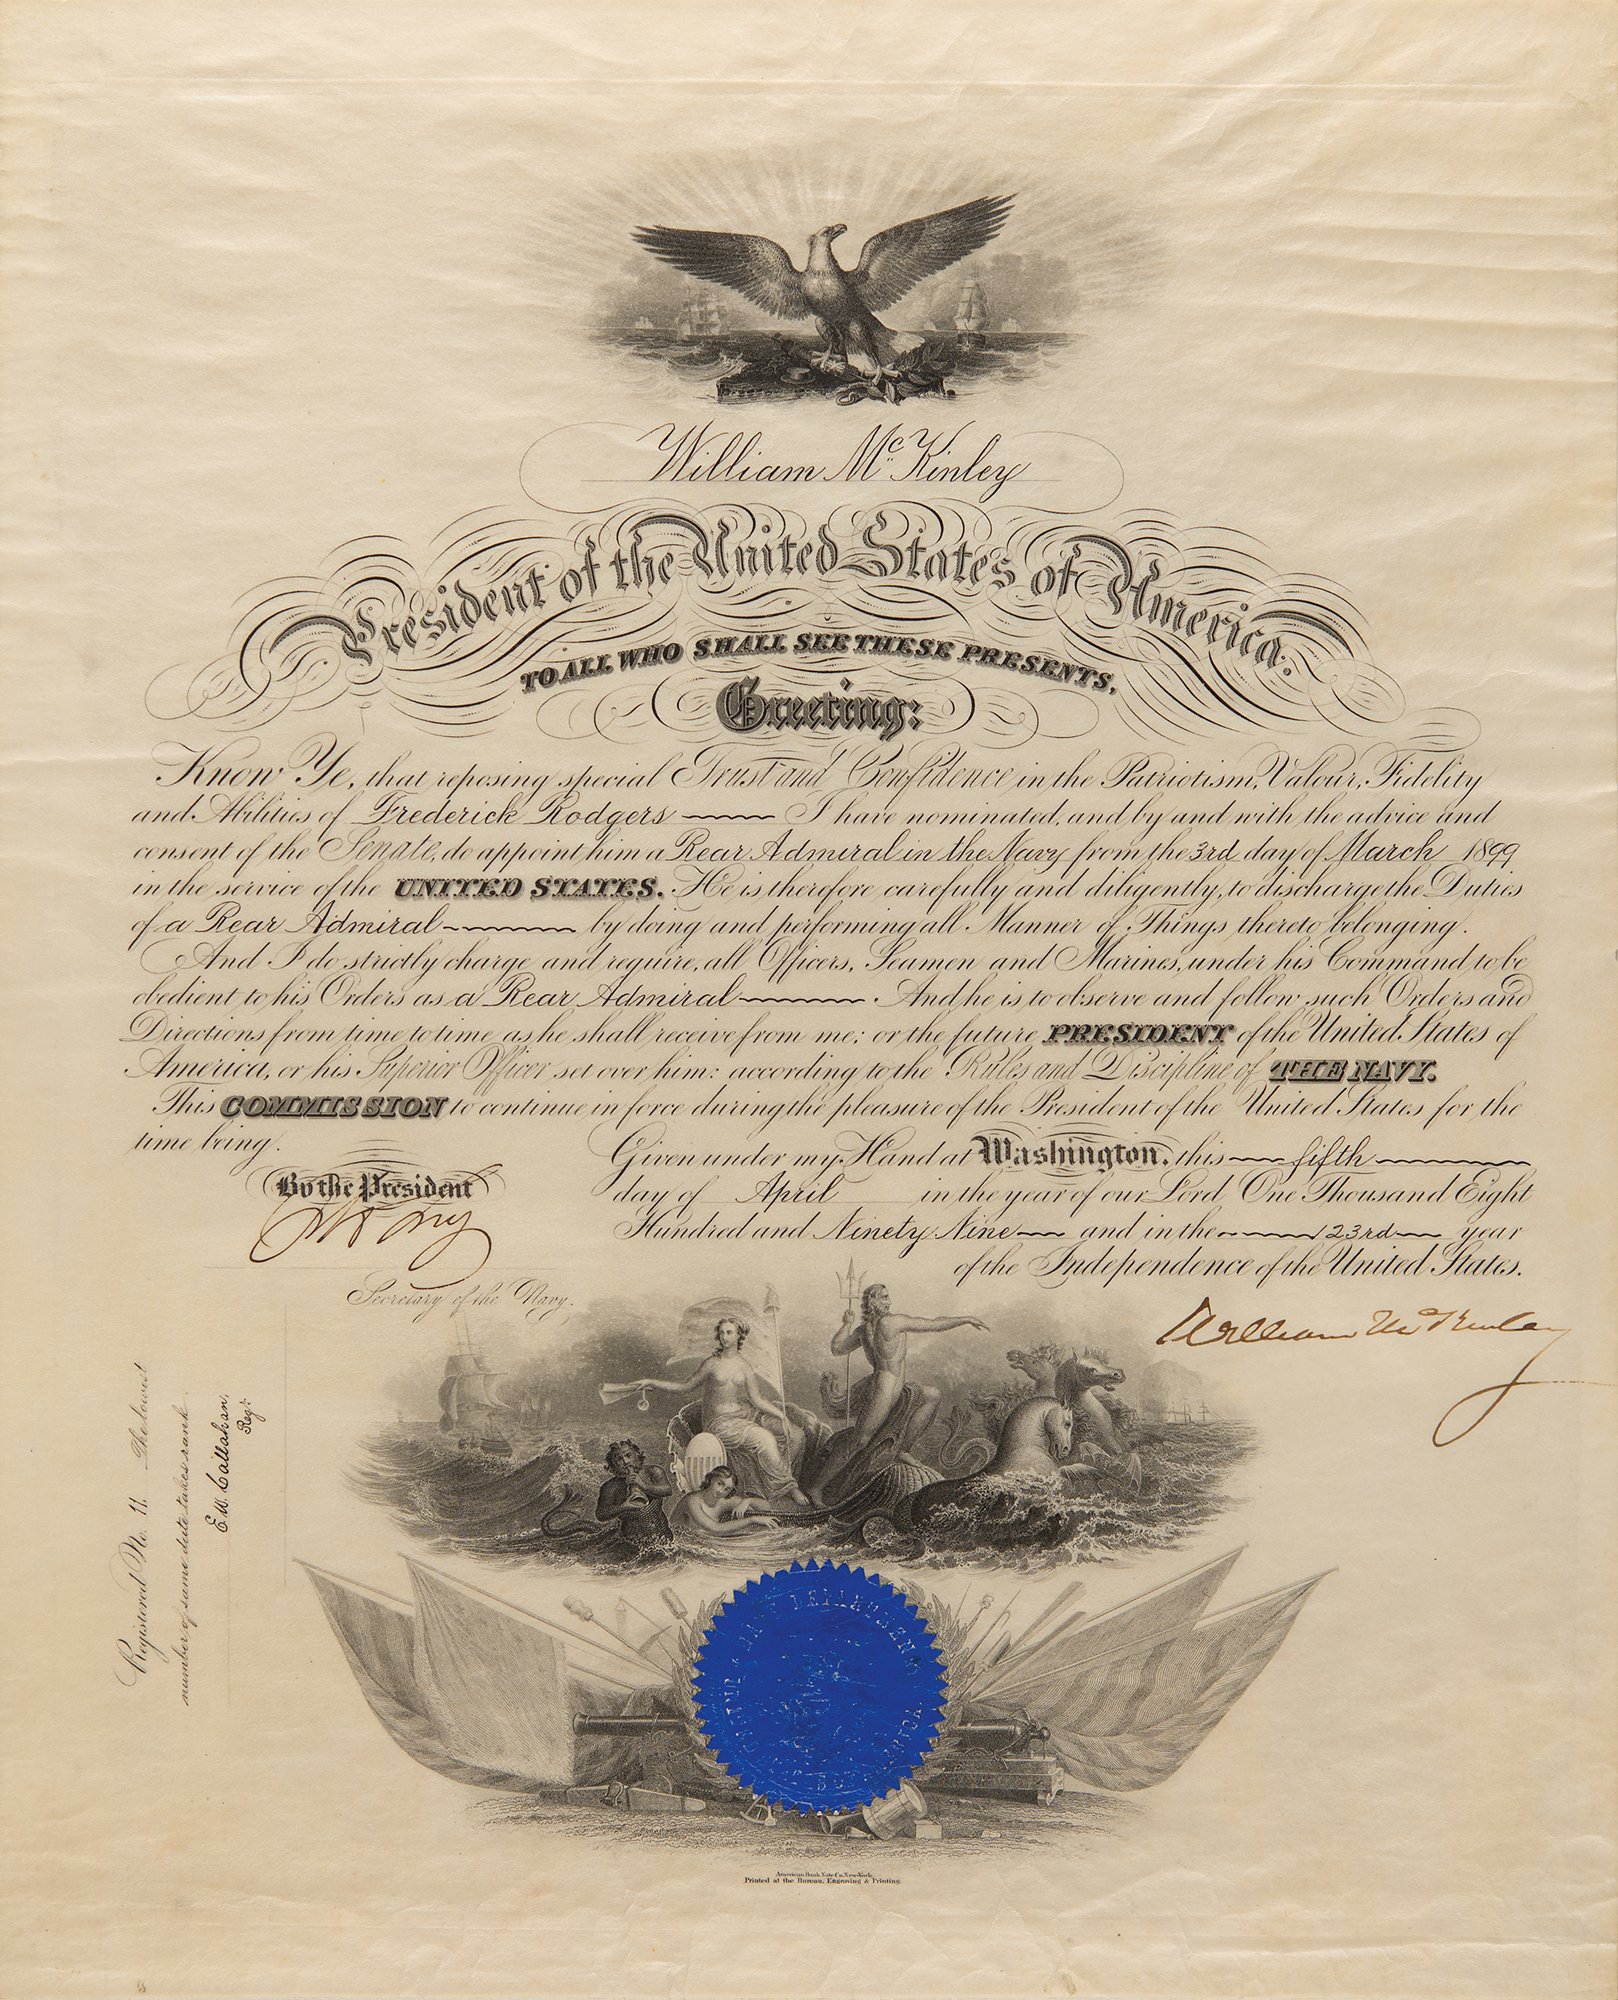 William McKinley
President of the United States of America.
TO ALL WHO SHALL SEE THESE PRESENTS,
Greeting:
Know Ye, that reposing special Trust and Confidence in the Patriotism, Valour, Fidelity
and Abilities of Frederick Rodgers I have nominated, and by and with the advice and
consent of the Senate, do appoint him a Rear Admiral in the Navy from the 3rd day of March 1899
in the service of the UNITED STATES. He is therefore carefully and diligently, to discharge the Duties
of a Rear Admiral by doing and performing all Manner of Things thereto belonging.
And I do strictly charge and require, all Officers, Seamen and Marines, under his Command to be
obedient to his Orders as a Rear Admiral. And he is to observe and follow such Orders and
Directions from time to time as he shall receive from me; or the future PRESIDENT of the United States of
America, or his Superior Officer set over him: according to the Rules and Discipline of THE NAVY.
This COMMISSION to continue in force during the pleasure of the President of the United States for the
time being.
Given under my Hand at Washington, this fifth
day of April in the year of our Lord One Thousand Eight
Hundred and Ninety Nine and in the 123rd year
of the Independence of the United States.
By the President
Secretary of the Navy.
William McKinley
Registered No. 11 The lowest
number of same date takes rank.
E.W. Callahan,
Regr.
NAVY DEPARTMENT
American Bank Note Co. New York.
Printed at the Bureau, Engraving & Printing.